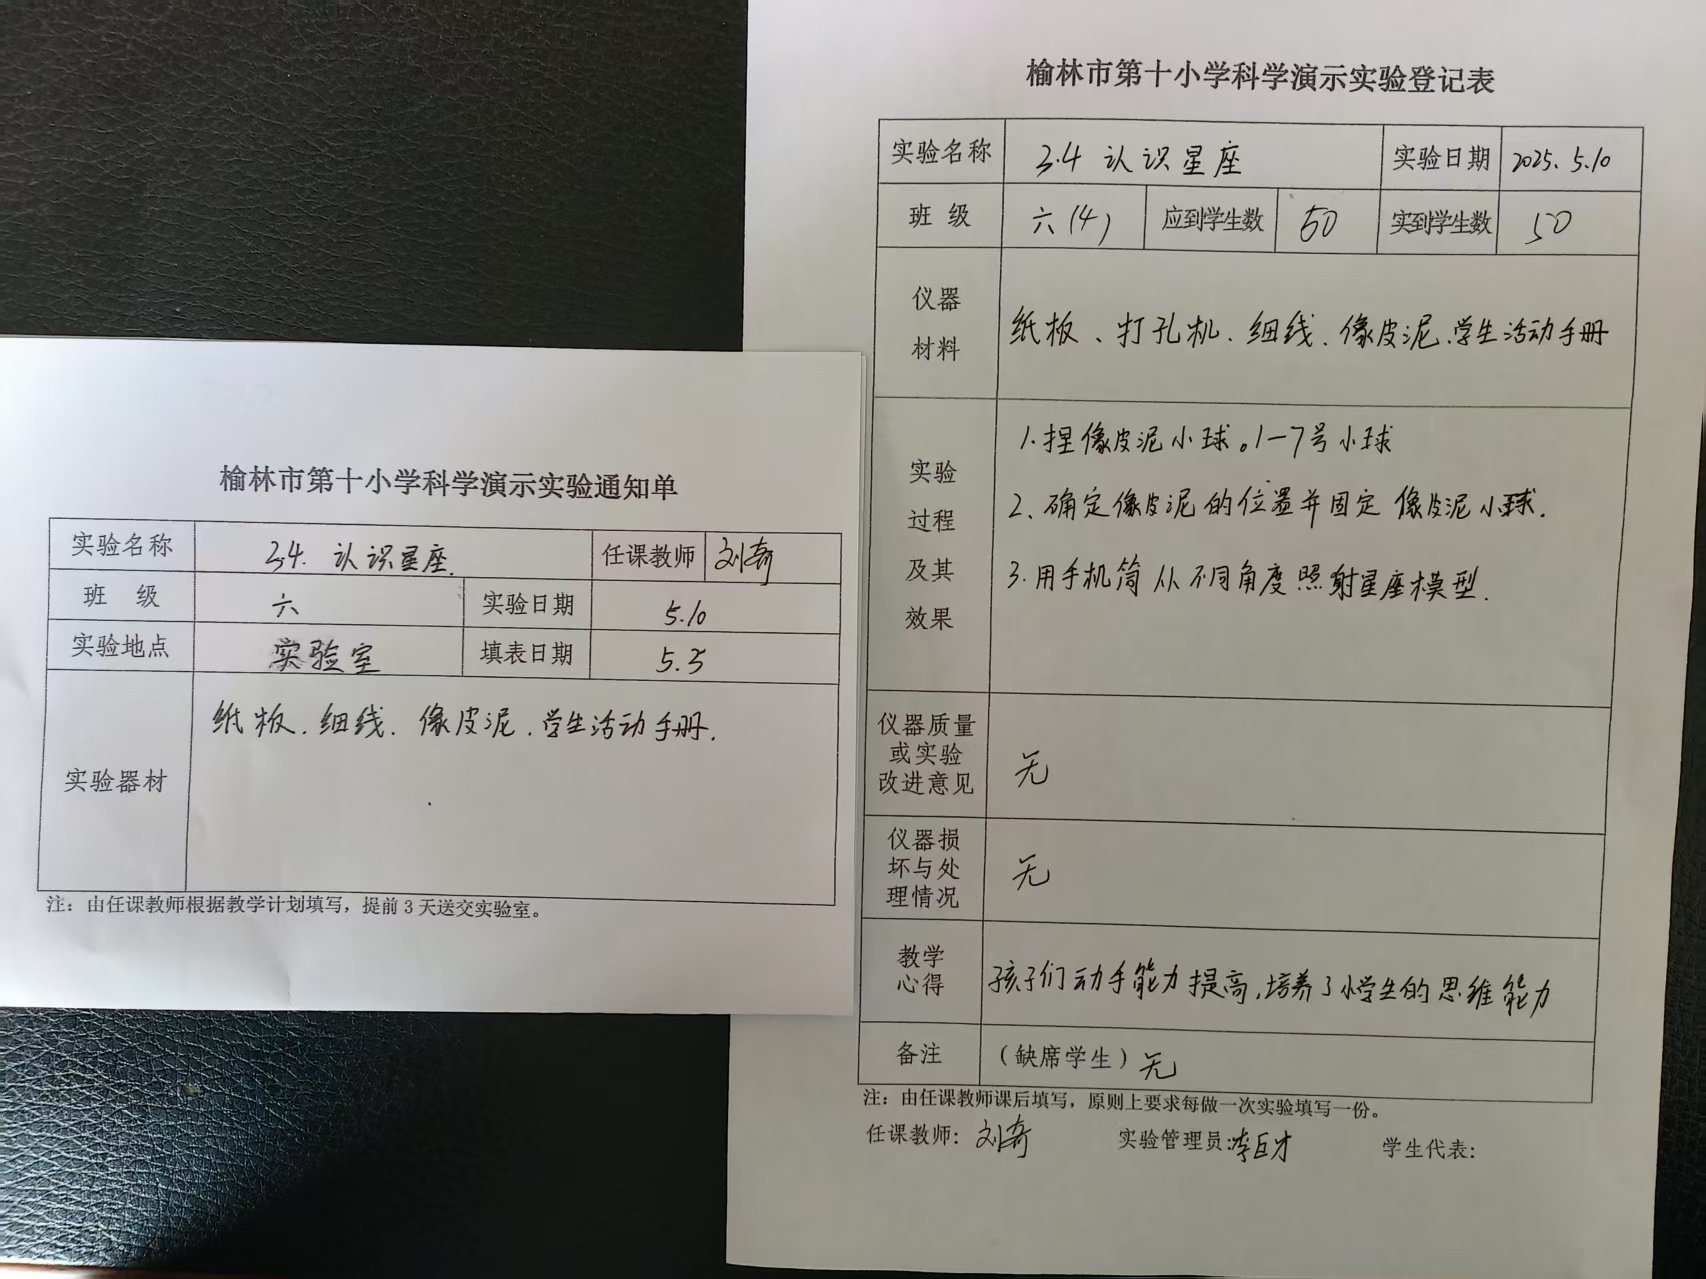 榆林市第十小学科学演示实验通知单
实验名称 3.4. 认识星座. 任课教师 刘奇
班 级 六 实验日期 5.10
实验地点 实验室 填表日期 5.5
实验器材 纸板、细线、像皮泥、学生活动手册.
注：由任课教师根据教学计划填写，提前3天送交实验室。
榆林市第十小学科学演示实验登记表
实验名称 3.4 认识星座 实验日期 2025.5.10
班 级 六(4) 应到学生数 50 实到学生数 50
仪器
材料
纸板、打孔机、细线、像皮泥、学生活动手册
实验
过程
及其
效果
1.捏像皮泥小球。1—7号小球
2、确定像皮泥的位置并固定像皮泥小球.
3.用手机筒从不同角度照射星座模型.
仪器质量
或实验
改进意见
无
仪器损
坏与处
理情况
无
教学
心得
孩子们动手能力提高,培养了小学生的思维能力
备注 （缺席学生）无
注：由任课教师课后填写，原则上要求每做一次实验填写一份。
任课教师：刘奇 实验管理员:李巨才 学生代表：